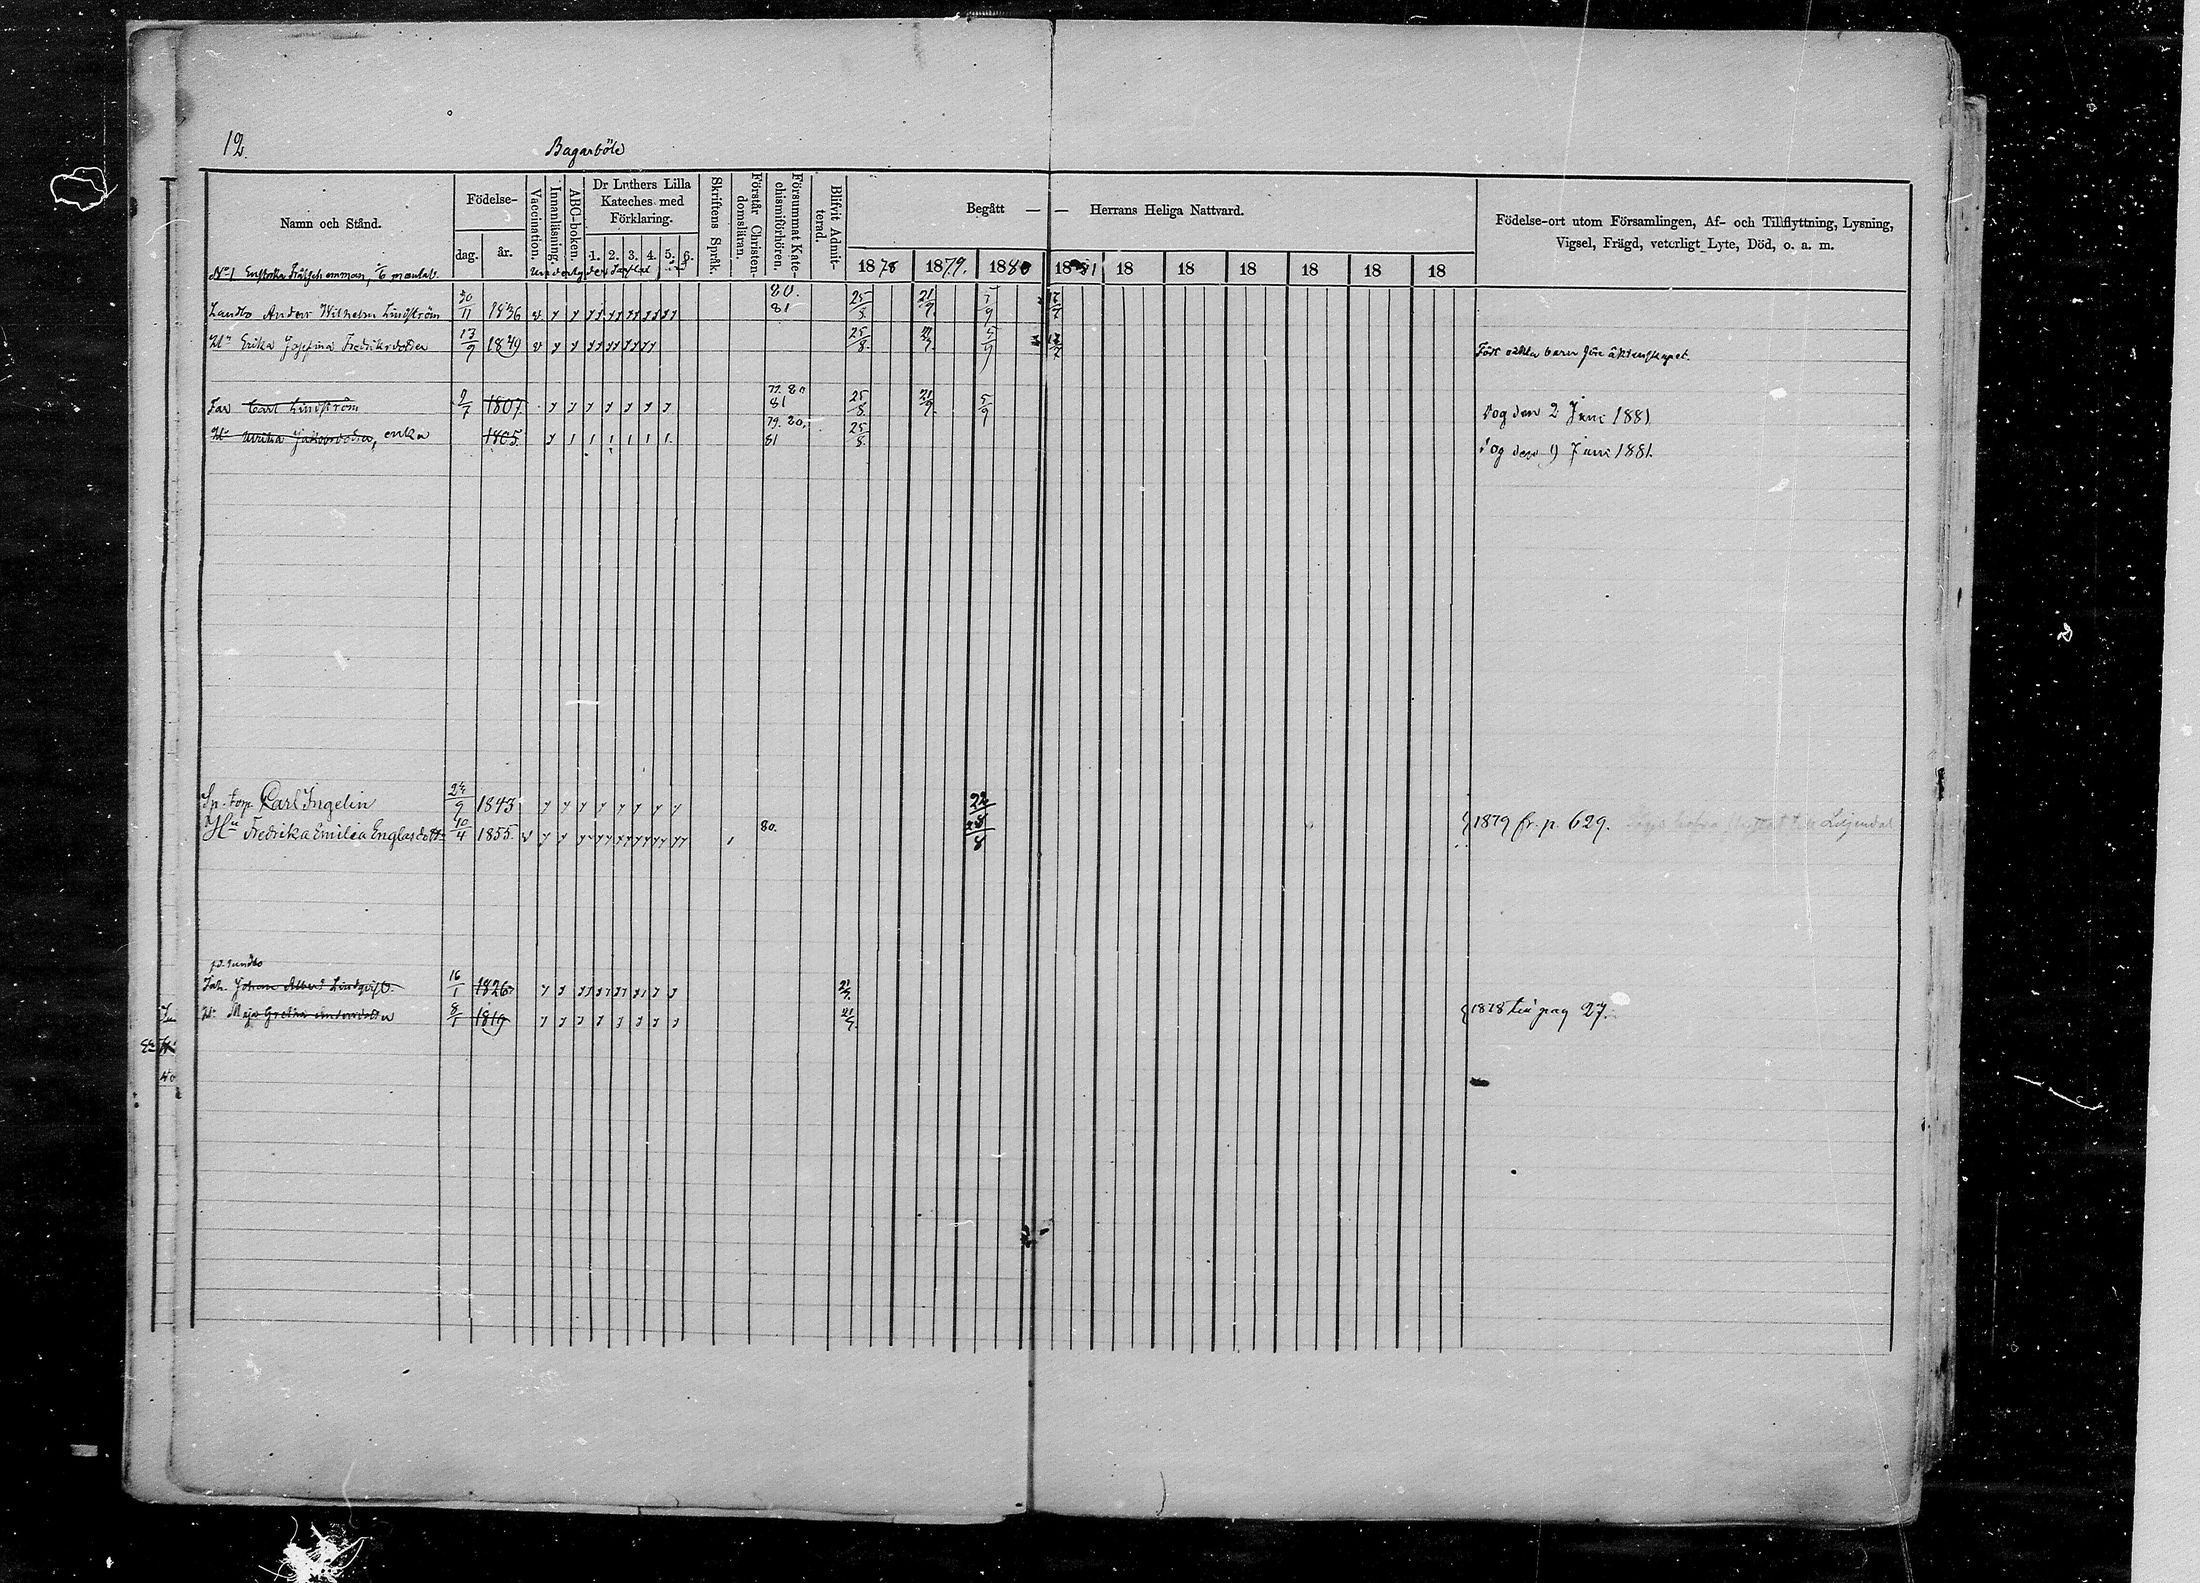 12.
Bagarböle
Namn och Stånd.
Födelse-
dag.
år.
Vaccination.
Innanläsning.
ABC-boken.
Dr Luthers Lilla
Kateches med
Förklaring.
1. 2. 3. 4. 5. 6.
Skriftens Språk.
Förstår Christen-
domsläran.
Försummat Kate-
chismiförhören.
Blifvit Admit-
terad.
Begått — — Herrans Heliga Nattvard.
1878 1879. 1880 1881 18 18 18 18 18 18
Födelse-ort utom Församlingen, Af- och Tillflyttning, Lysning,
Vigsel, Frägd, veterligt Lyte, Död, o. a. m.
No 1
80.
Landbo Anders Wilhelm Lindström 30/11 1836 v 81 25/8 21/9
Hu Erika Josefina Fredriksdotter 13/9 1849 v 25/8 5/9
Född oäkta barn före äktenskapet.
77. 80
Far Carl Lindström 1807 81 25/8 21/9 5/9 Dog den 2 Juni 1881
79. 80.
Hu Ulrika Jakobsdotter, enka 1805 81 25/8 Dog den 9 Juni 1881.
Sp. torp. Carl Ingelin 24/9 1843 22/8
Hu Fredrika Emilia Englasdott. 10/4 1855. v 80. 1879 fr. p. 629. Liljendal
Inh. Johan Albert Lindqvist 16/1 1826
Hu Maja Greta Andersdotter 8/1 1819 1878 till pag 27.